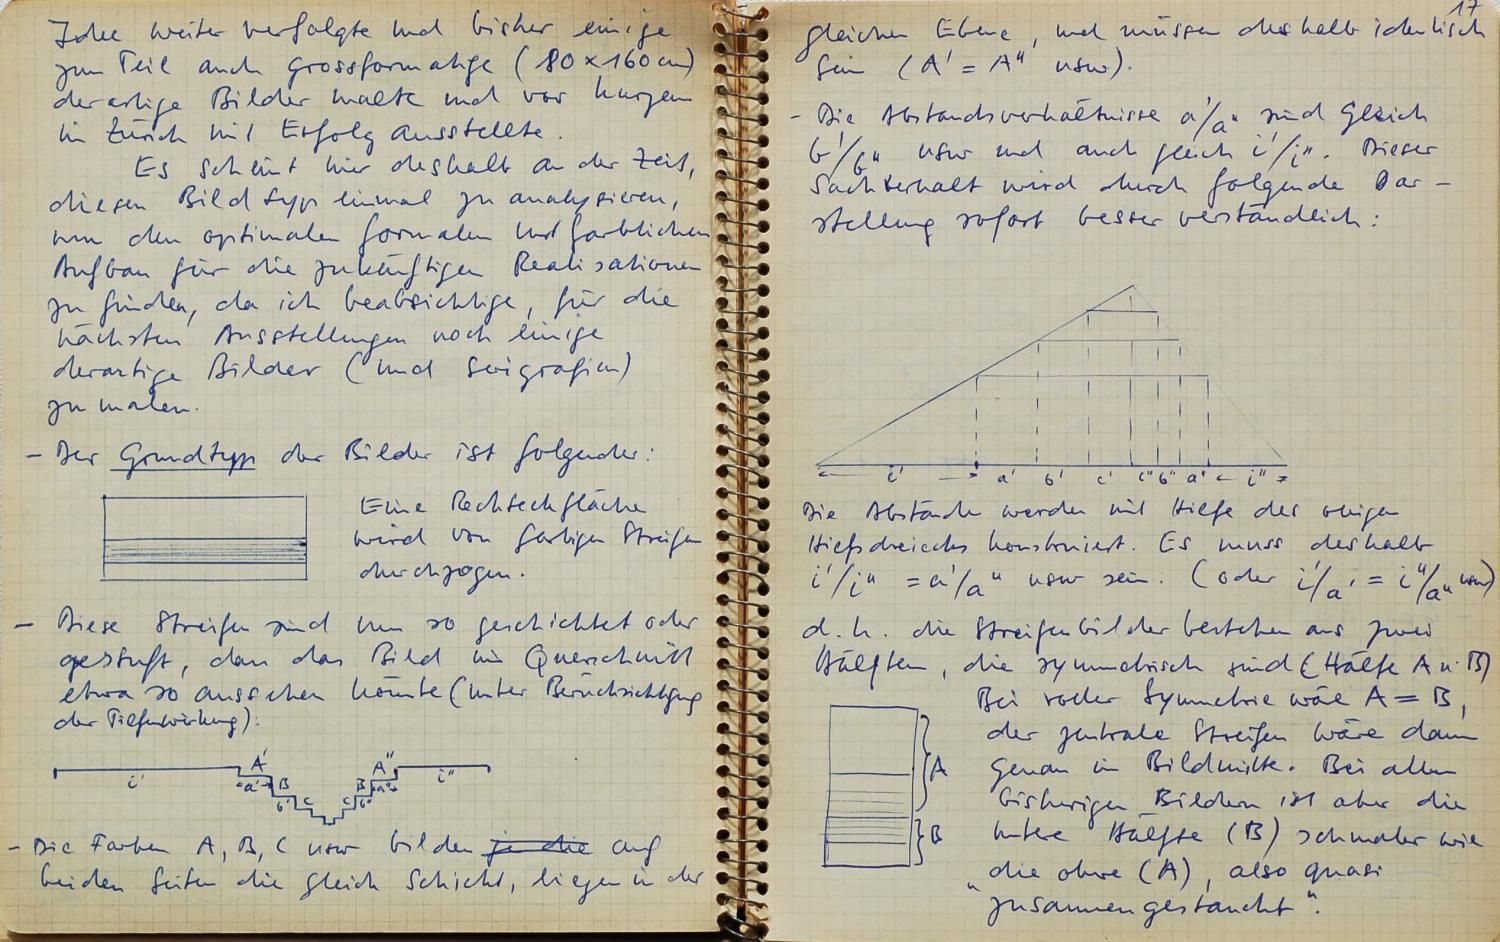 Idee weiter verfolgte und bisher einige
zum Teil auch grossformatige (80 x 160 cm)
derartige Bilder malte und vor kurzem
in Zürich mit Erfolg ausstellte.
Es scheint mir deshalb an der Zeit,
diesen Bildtyp einmal zu analysieren,
um den optimalen formalen und farblichen
Aufbau für die zukünftigen Realisationen
zu finden, da ich beabsichtige, für die
nächsten Ausstellungen noch einige
derartige Bilder (und Serigrafien)
zu malen.
- Der Grundtyp der Bilder ist folgender:
Eine Rechteckfläche
wird von farbigen Streifen
durchzogen.
- Diese Streifen sind nun so geschichtet oder
gestuft, dass das Bild im Querschnitt
etwa so aussehen könnte (unter Berücksichtigung
der Tiefenwirkung):
i' A' a' B b' C C B b" A" a" i"
- Die Farben A, B, C usw bilden je die auf
beiden Seiten die gleich Schicht, liegen in der
17
gleichen Ebene, und müssen deshalb identisch
sein (A' = A" usw).
- Die Abstandsverhältnisse a'/a" sind gleich
b'/b" usw und auch gleich i'/i". Dieser
Sachverhalt wird durch folgende Dar-
stellung sofort besser verständlich:
i' a' b' c' c" b" a" i"
Die Abstände werden mit Hilfe des obigen
Hilfsdreiecks konstruiert. Es muss deshalb
i'/i" = a'/a" usw sein. (oder i'/a' = i"/a" usw)
d.h. die Streifenbilder bestehen aus zwei
Hälften, die symmetrisch sind (Hälfte A u. B)
Bei voller Symmetrie wäre A = B,
der zentrale Streifen wäre dann
genau in Bildmitte. Bei allen
bisherigen Bildern ist aber die
untere Hälfte (B) schmaler wie
die obere (A), also quasi
"zusammengestaucht".
A
B